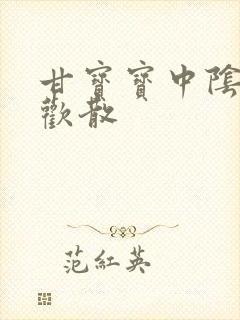 甘寶寶中陰
歡散
范紅英